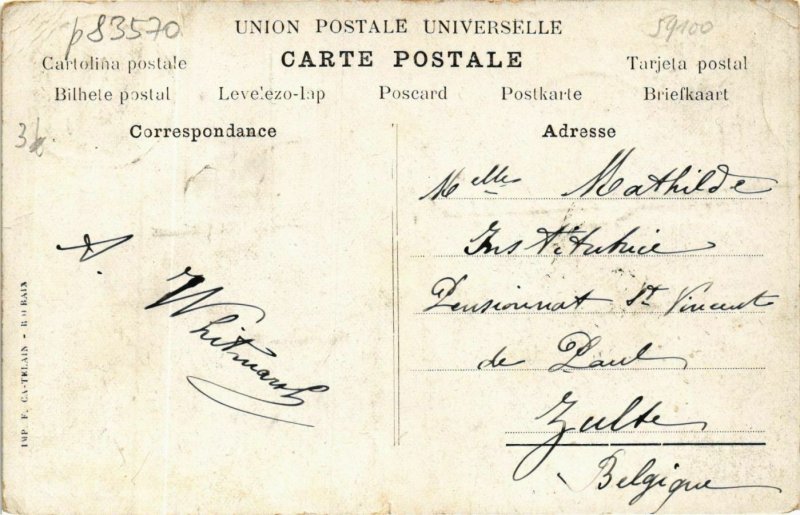 p83570
UNION POSTALE UNIVERSELLE
59100
CARTE POSTALE
Cartolina postale
Tarjeta postal
Bilhete postal Levelezo-lap Poscard Postkarte Briefkaart
Correspondance
A. Whitmarsh
IMP. F. CATELAIN - ROUBAIX
Adresse
Melles Mathilde
Institutrice
Pensionnat St Vincent
de Paul
Zulte
Belgique